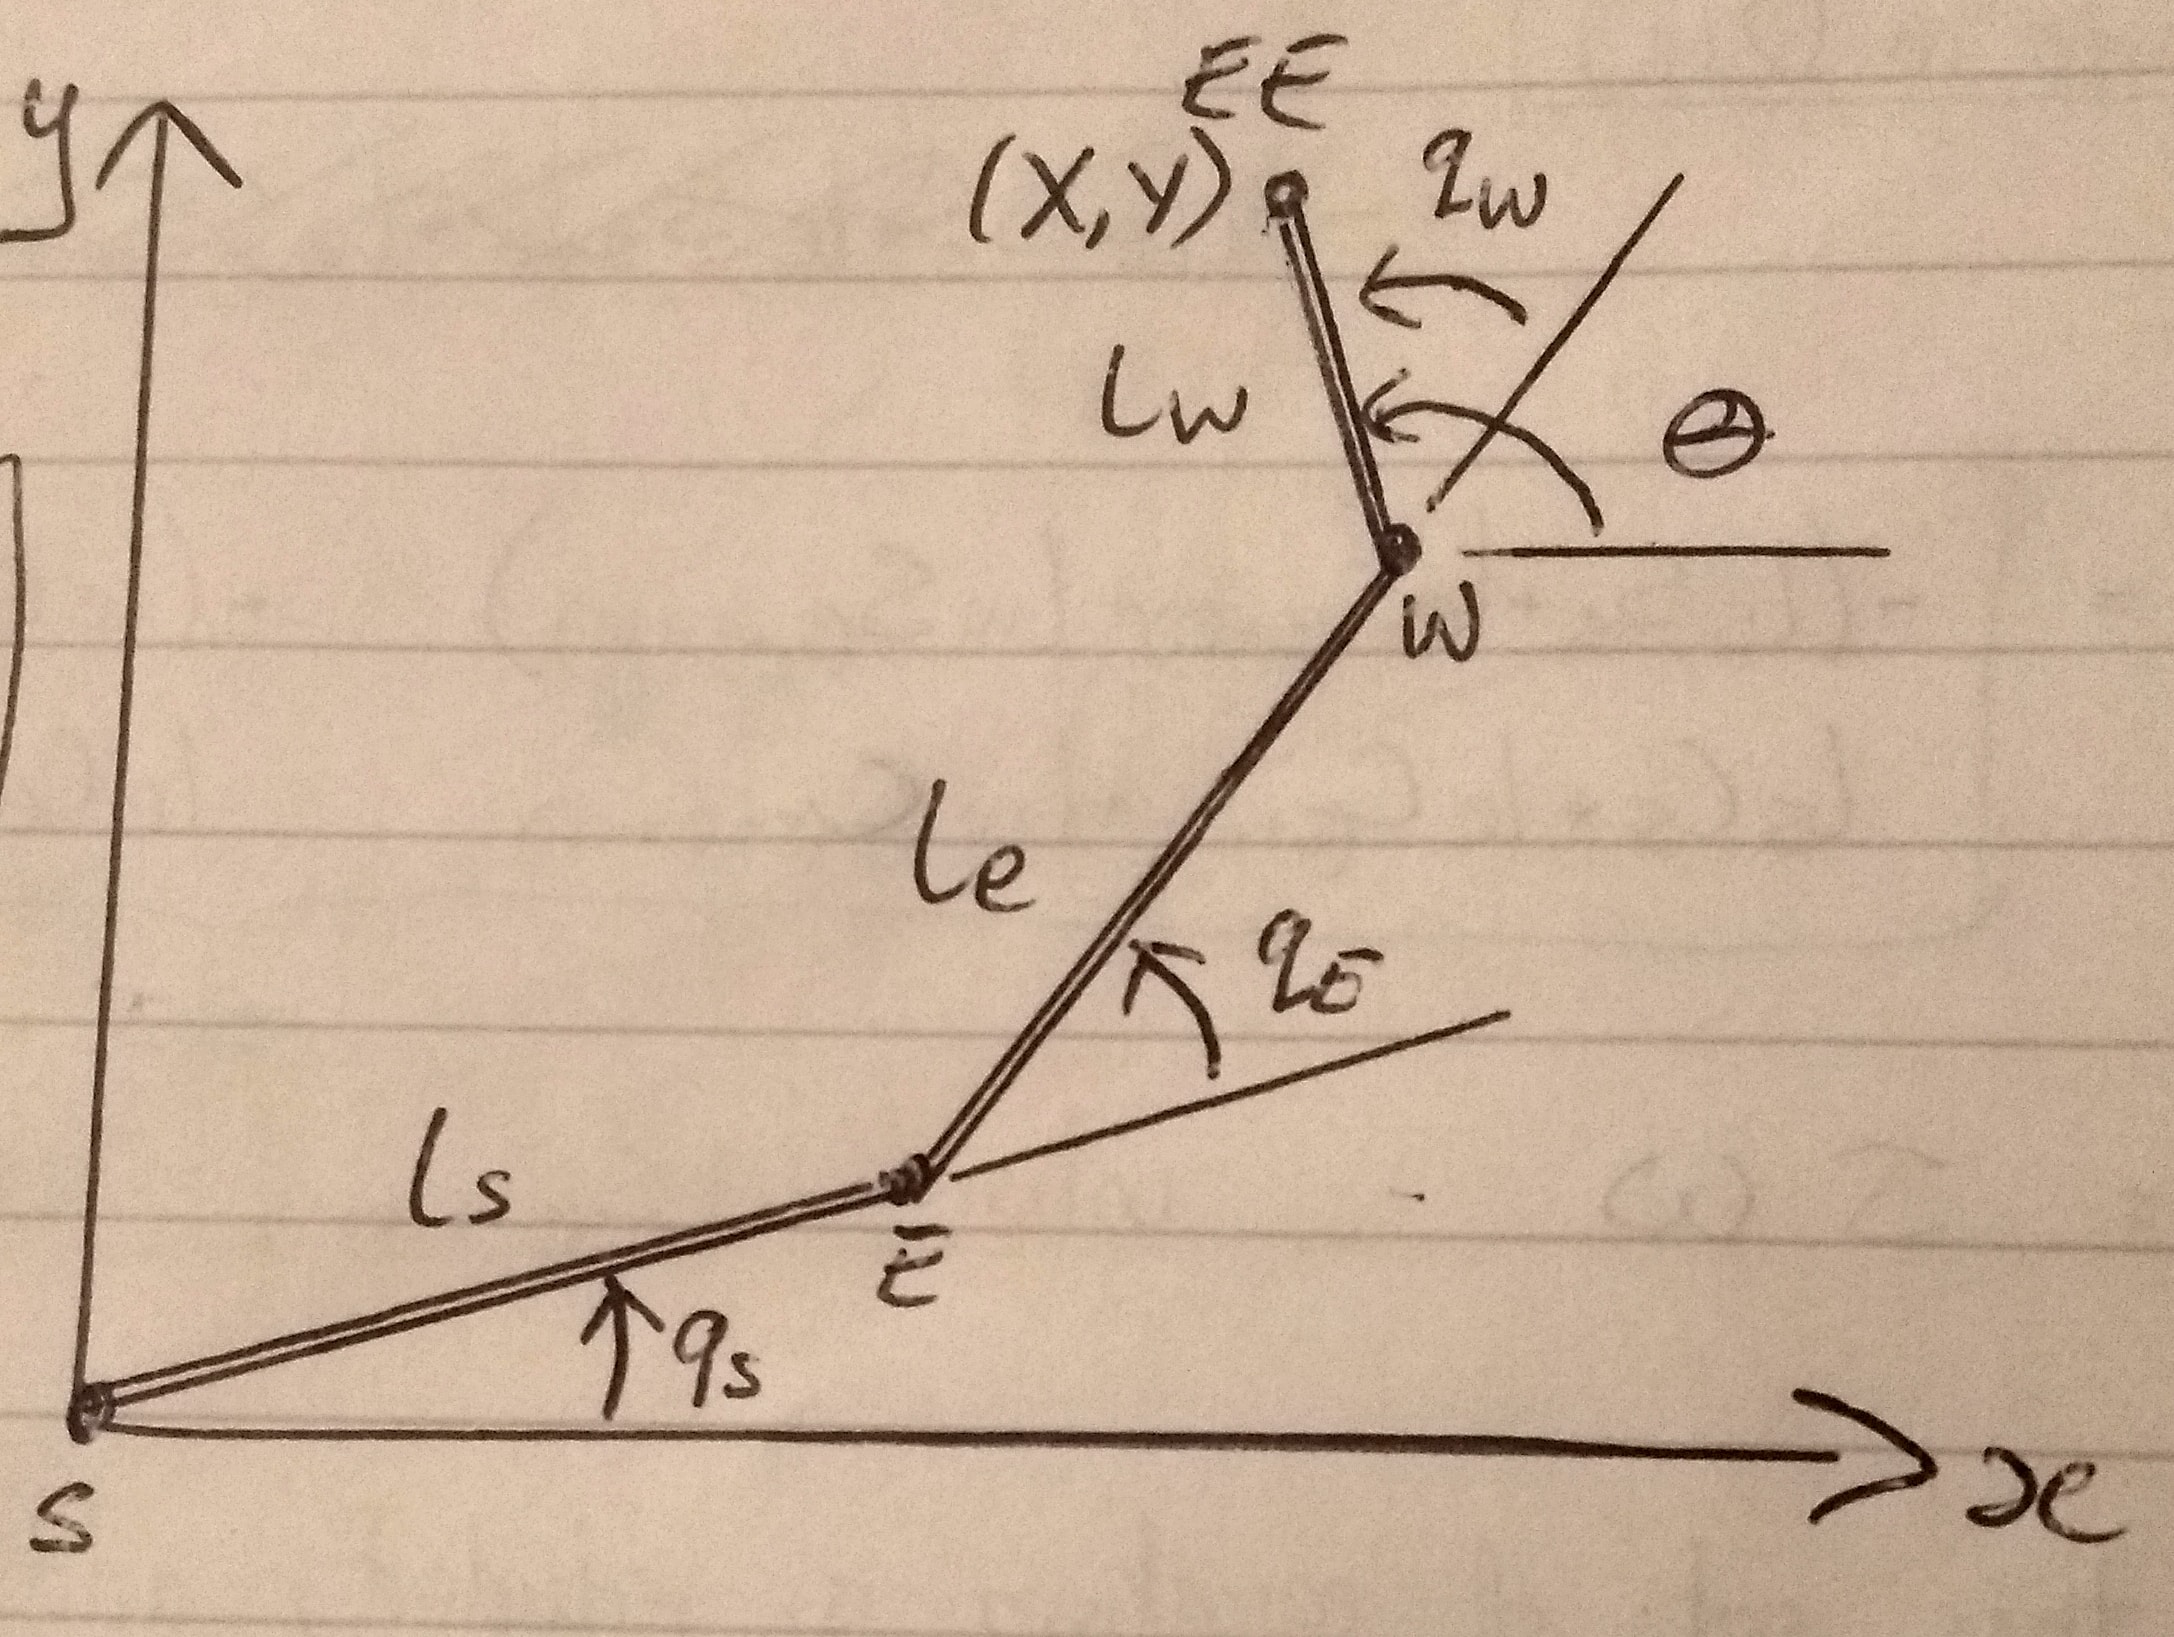 EE
y
(X, Y)
qw
lw
Θ
W
le
qE
ls
E
qs
S
x